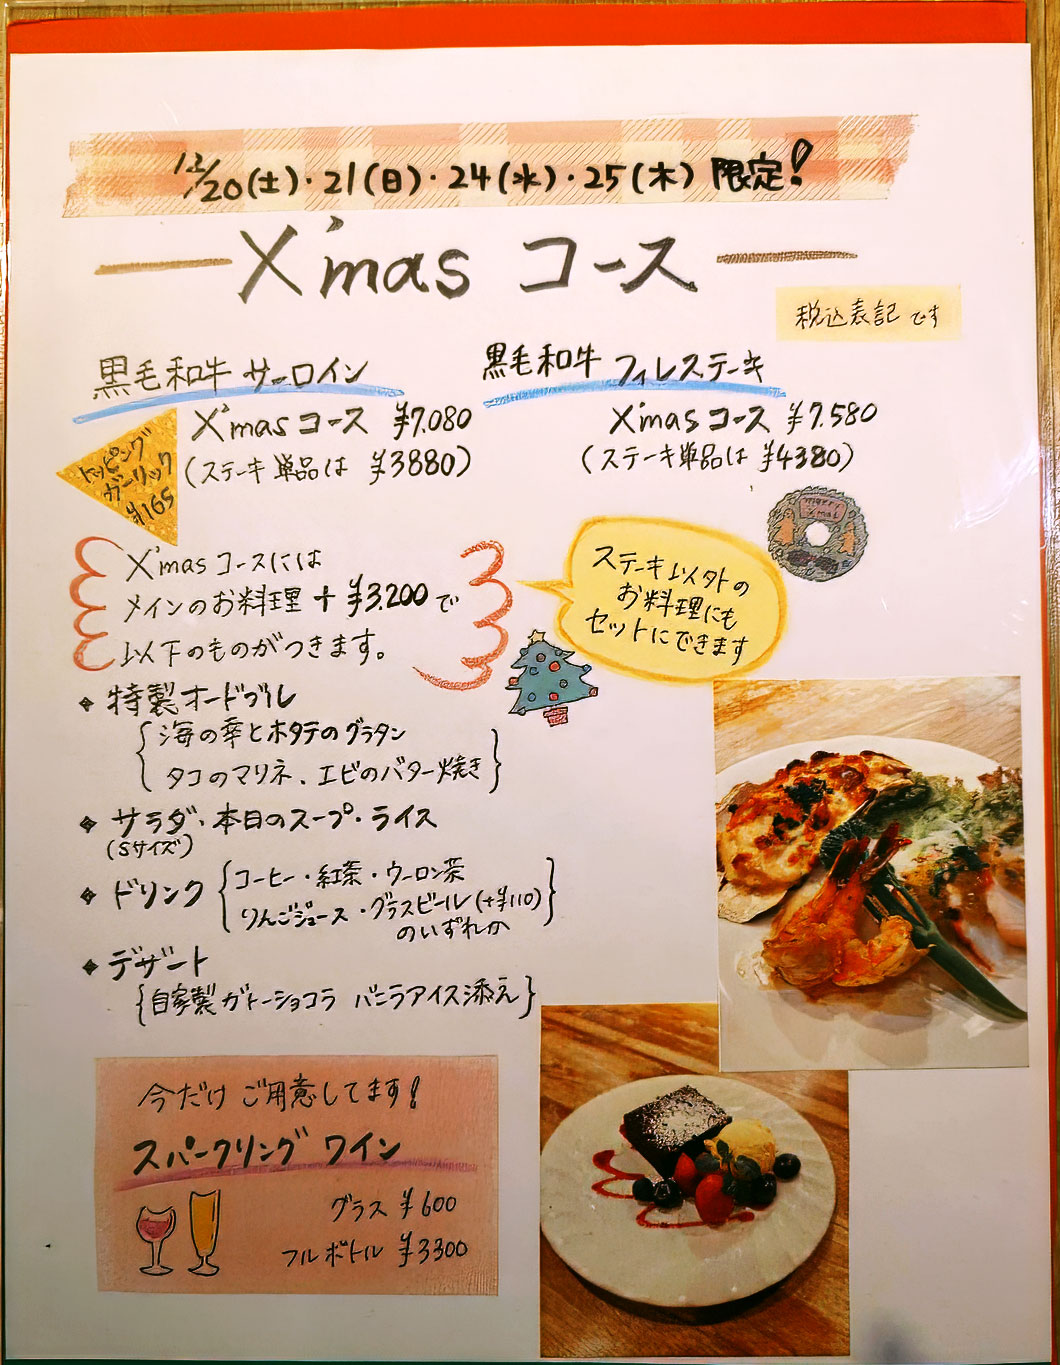 12/20(土)・21(日)・24(水)・25(木) 限定!
X'mas コース
税込表記です
黒毛和牛 サーロイン
X'mas コース ¥7,080
(ステーキ単品は ¥3880)
トッピング
ガーリック
¥165
黒毛和牛 フィレステーキ
X'mas コース ¥7,580
(ステーキ単品は ¥4380)
merry
X'mas
X'mas コースには
メインのお料理 + ¥3,200で
以下のものがつきます。
ステーキ以外の
お料理にも
セットにできます
◆ 特製オードブル
{海の幸とホタテのグラタン
タコのマリネ、エビのバター焼き}
◆ サラダ・本日のスープ・ライス
(Sサイズ)
◆ ドリンク {コーヒー・紅茶・ウーロン茶
りんごジュース・グラスビール(+¥110)
のいずれか}
◆ デザート
{自家製ガトーショコラ バニラアイス添え}
今だけ ご用意してます!
スパークリング ワイン
グラス ¥600
フルボトル ¥3300